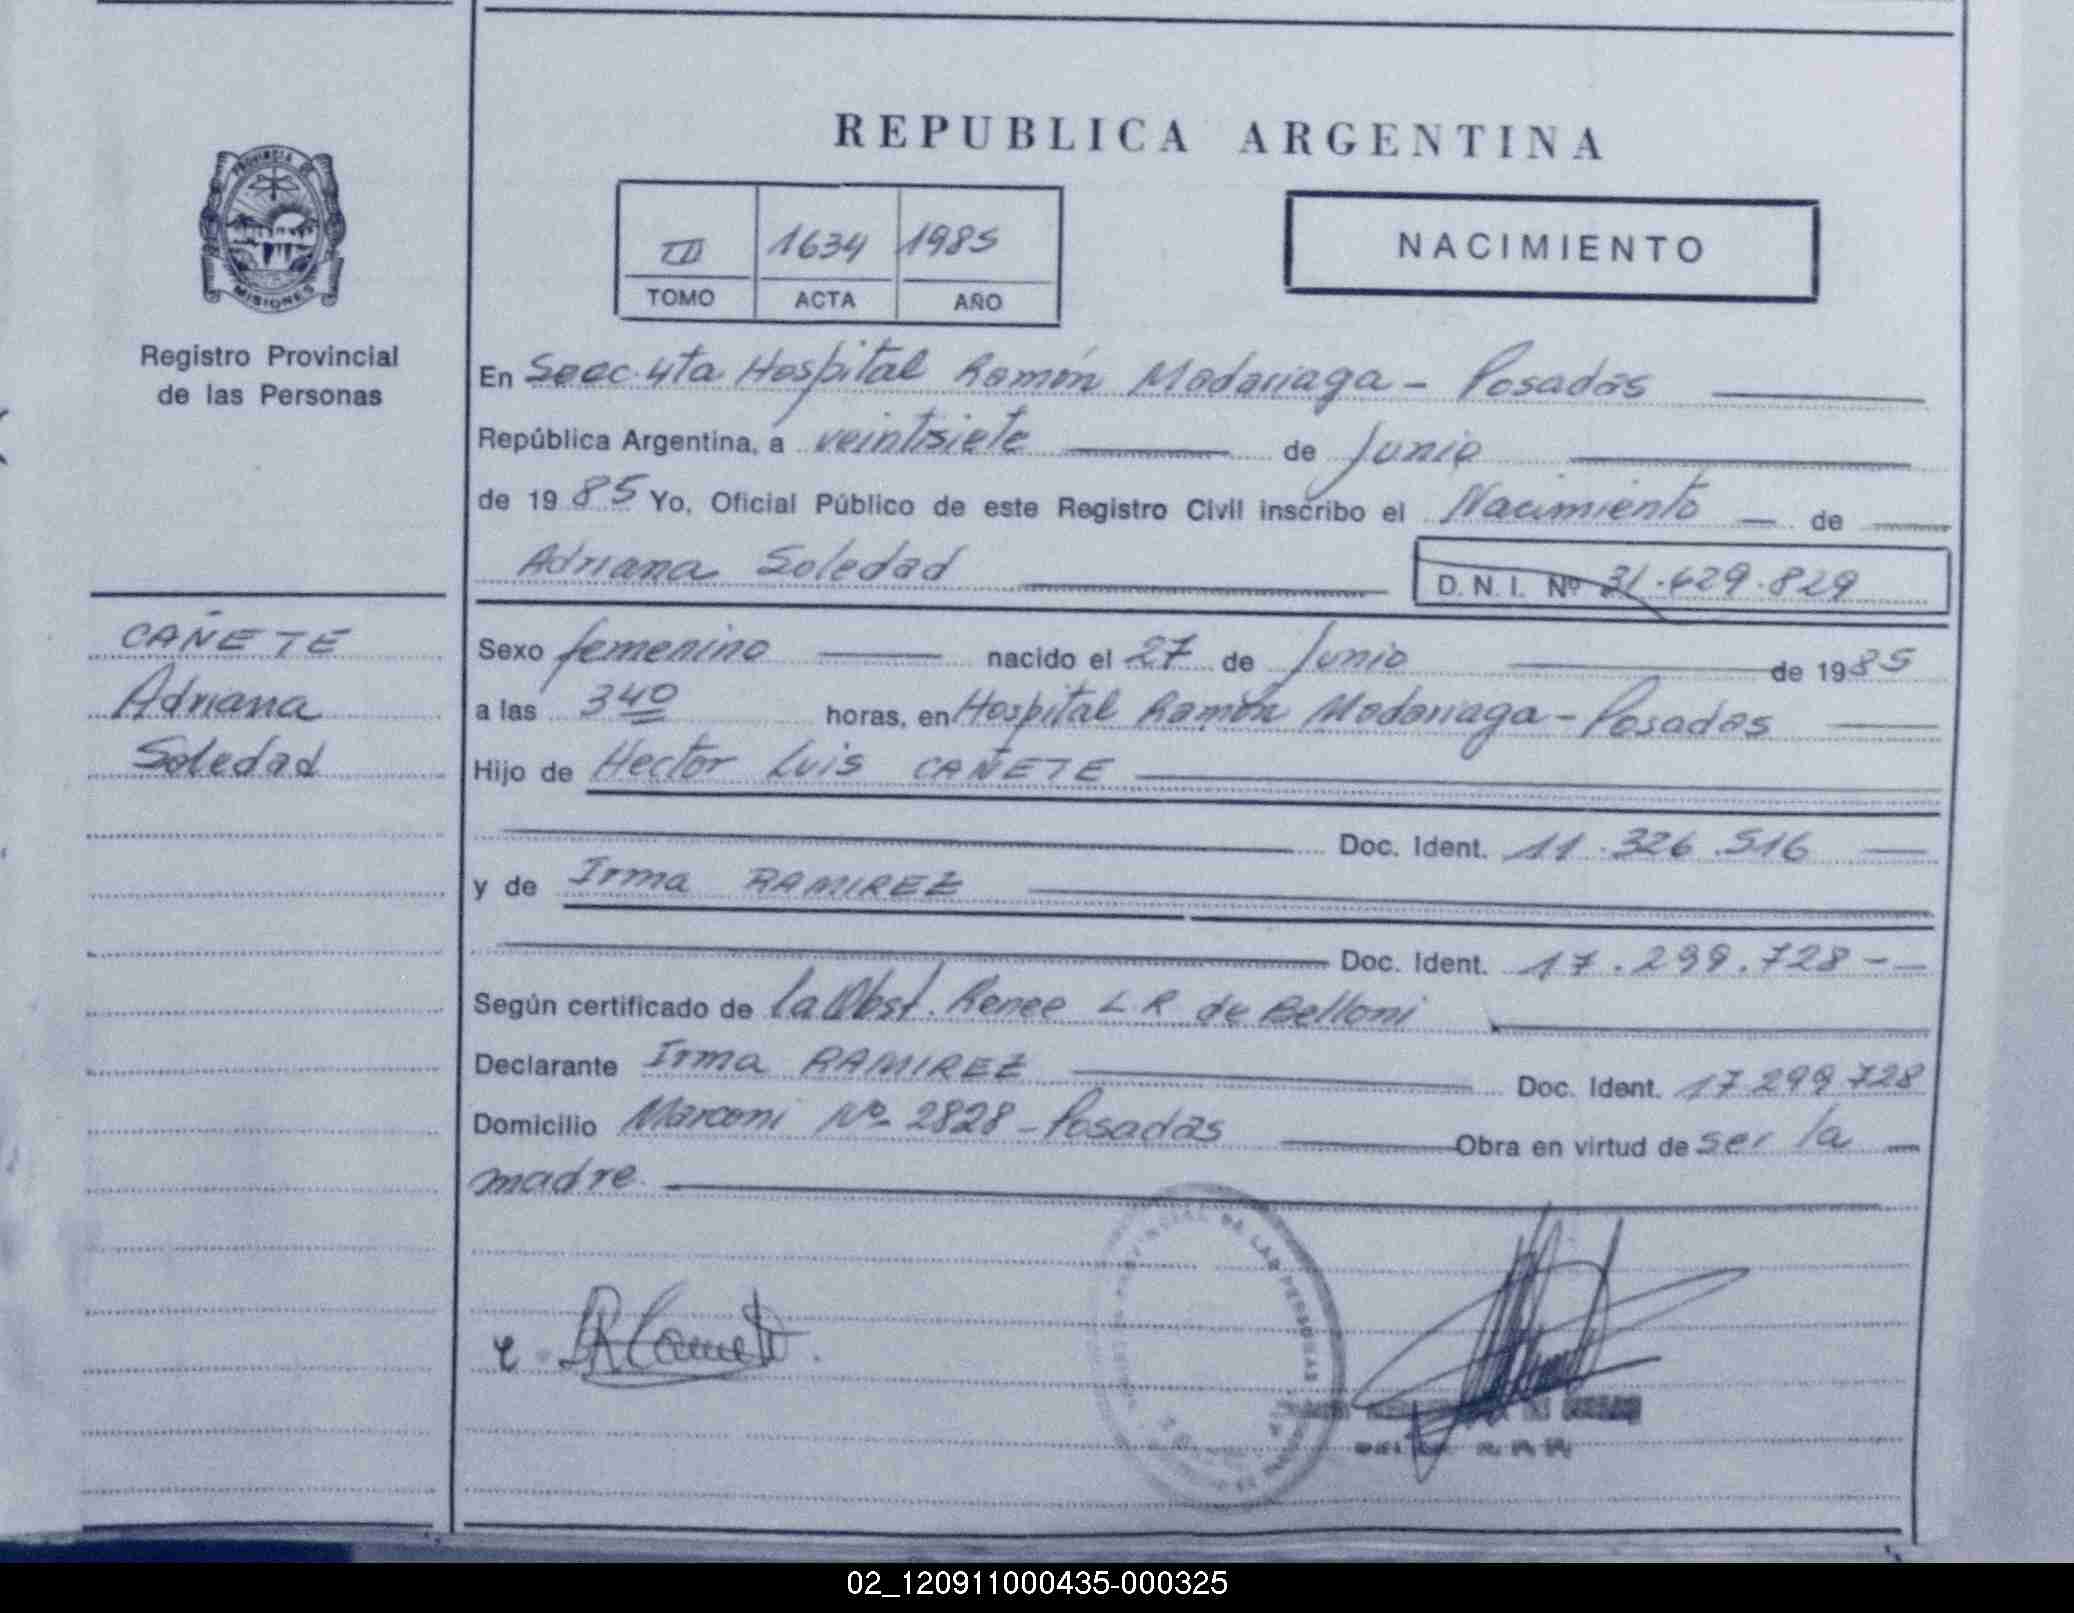 REPUBLICA ARGENTINA
PROVINCIA DE
MISIONES
Registro Provincial
de las Personas
III 1634 1985
TOMO ACTA AÑO
NACIMIENTO
En Secc. 4ta Hospital Ramón Madariaga - Posadas
República Argentina, a veintisiete de Junio
de 1985 Yo, Oficial Público de este Registro Civil inscribo el Nacimiento de
Adriana Soledad D. N. I. Nº 31.629.829
CAÑETE
Adriana
Soledad
Sexo femenino nacido el 27 de Junio de 1985
a las 340 horas, en Hospital Ramón Madariaga - Posadas
Hijo de Hector Luis CAÑETE
Doc. Ident. 11.326.516
y de Irma RAMIREZ
Doc. Ident. 17.299.728 -
Según certificado de la Obst. Renee L R de Belloni
Declarante Irma RAMIREZ Doc. Ident. 17 299 728
Domicilio Marconi Nº 2828 - Posadas Obra en virtud de ser la
madre.
DE LAS PERSONAS
02_120911000435-000325